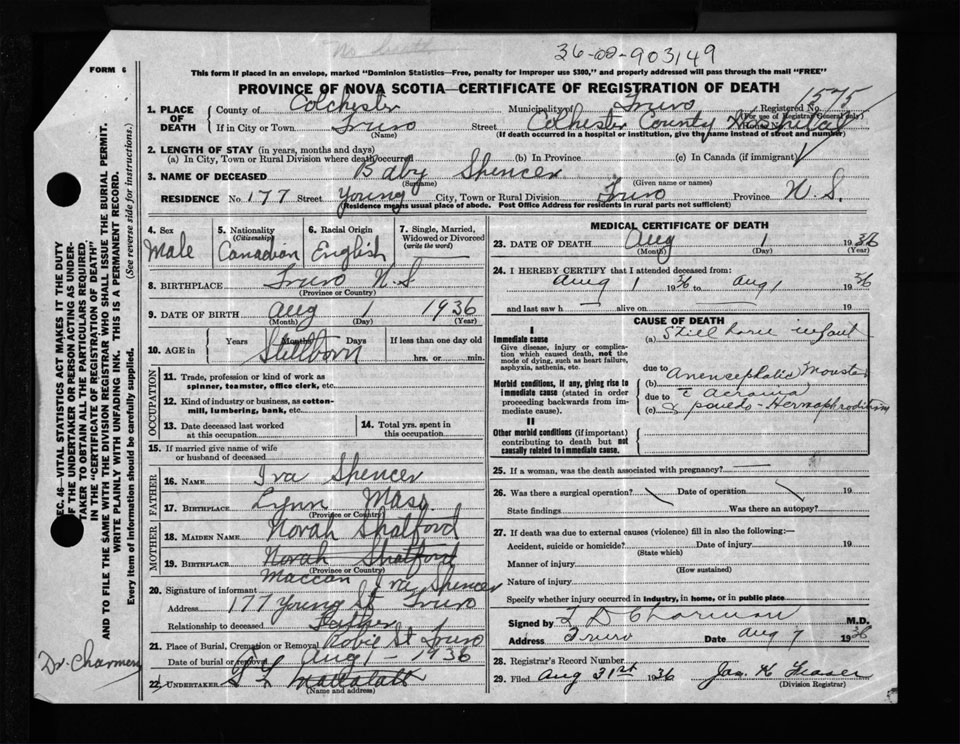 No death
36-02-903149
FORM 6
This form if placed in an envelope, marked "Dominion Statistics—Free, penalty for improper use $300," and properly addressed will pass through the mail "FREE"
PROVINCE OF NOVA SCOTIA—CERTIFICATE OF REGISTRATION OF DEATH
1575
1. PLACE OF DEATH County of Colchester Municipality of Truro Registered No.
(For use of Registrar General only)
If in City or Town Truro Street Colchester County Hospital
(Name) (If death occurred in a hospital or institution, give the name instead of street and number)
2. LENGTH OF STAY (in years, months and days)
(a) In City, Town or Rural Division where death occurred (b) In Province (c) In Canada (if immigrant)
3. NAME OF DECEASED Baby Spencer
(Surname) (Given name or names)
RESIDENCE No. 177 Street Young City, Town or Rural Division Truro Province N.S.
(Residence means usual place of abode. Post Office Address for residents in rural parts not sufficient)
4. Sex 5. Nationality (Citizenship) 6. Racial Origin 7. Single, Married, Widowed or Divorced (write the word)
Male Canadian English
8. BIRTHPLACE Truro N.S
(Province or Country)
9. DATE OF BIRTH Aug 1 1936
(Month) (Day) (Year)
10. AGE in Years Months Days If less than one day old
Stillborn hrs. or min.
OCCUPATION
11. Trade, profession or kind of work as spinner, teamster, office clerk, etc.
12. Kind of industry or business, as cotton-mill, lumbering, bank, etc.
13. Date deceased last worked at this occupation 14. Total yrs. spent in this occupation
15. If married give name of wife or husband of deceased
FATHER
16. NAME Ira Spencer
17. BIRTHPLACE Lynn Mass
(Province or Country)
MOTHER
18. MAIDEN NAME Norah Shatford
19. BIRTHPLACE Norah Shatford
(Province or Country)
Maccan
20. Signature of informant Ira Spencer
Address 177 Young St Truro
Relationship to deceased Father
21. Place of Burial, Cremation or Removal Robie St Truro
Date of burial or removal Aug 1 - 1936
22. UNDERTAKER
(Name and address)
MEDICAL CERTIFICATE OF DEATH
23. DATE OF DEATH Aug 1 1936
(Month) (Day) (Year)
24. I HEREBY CERTIFY that I attended deceased from:
Aug 1 1936 to Aug 1 1936
and last saw h alive on 19
CAUSE OF DEATH
I
Immediate cause
Give disease, injury or complication which caused death, not the mode of dying, such as heart failure, asphyxia, asthenia, etc.
(a) Still born infant
due to Anencephalic Monster
Morbid conditions, if any, giving rise to immediate cause (stated in order proceeding backwards from immediate cause).
(b)
due to
(c) pseudo-Hermaphroditism
II
Other morbid conditions (if important) contributing to death but not causally related to immediate cause.
25. If a woman, was the death associated with pregnancy?
26. Was there a surgical operation? Date of operation 19
State findings Was there an autopsy?
27. If death was due to external causes (violence) fill in also the following:—
Accident, suicide or homicide? Date of injury 19
(State which)
Manner of injury
(How sustained)
Nature of injury
Specify whether injury occurred in industry, in home, or in public place
Signed by M.D.
Address Truro Date Aug 7 1936
28. Registrar's Record Number
29. Filed Aug 31st 1936 Jas. K. Fraser
(Division Registrar)
SEC. 46—VITAL STATISTICS ACT MAKES IT THE DUTY OF THE UNDERTAKER OR PERSON ACTING AS UNDERTAKER TO OBTAIN ALL THE PARTICULARS REQUIRED IN THE "CERTIFICATE OF REGISTRATION OF DEATH" AND TO FILE THE SAME WITH THE DIVISION REGISTRAR WHO SHALL ISSUE THE BURIAL PERMIT.
WRITE PLAINLY WITH UNFADING INK. THIS IS A PERMANENT RECORD.
Every item of information should be carefully supplied. (See reverse side for instructions.)
Dr. Charmen